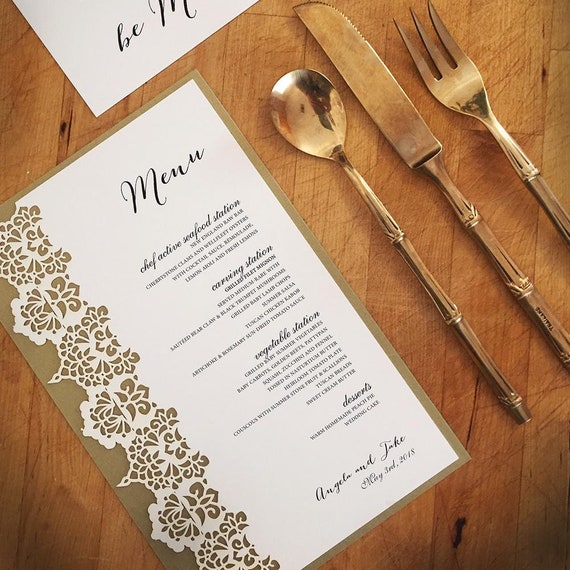 be M
Menu
chef active seafood station
NEW ENGLAND RAW BAR
CHERRYSTONE CLAMS AND WELLFLEET OYSTERS
WITH COCKTAIL SAUCE, REMOULADE,
LEMON AIOLI AND FRESH LEMONS
carving station
GRILLED FILET MIGNON
SERVED MEDIUM RARE WITH
SAUTEED BEAR CLAW & BLACK TRUMPET MUSHROOMS
GRILLED BABY LAMB CHOPS
SUMMER SALSA
TUSCAN CHICKEN KABOB
ARTICHOKE & ROSEMARY SUN DRIED TOMATO SAUCE
vegetable station
GRILLED BABY SUMMER VEGETABLES
BABY CARROTS, GOLDEN BEETS, PATTYPAN
SQUASH, ZUCCHINI AND FENNEL
TOSSED IN NASTURTIUM BUTTER
HEIRLOOM TOMATO PLATE
COUSCOUS WITH SUMMER STONE FRUIT & SCALLIONS
TUSCAN BREADS
SWEET CREAM BUTTER
desserts
WARM HOMEMADE PEACH PIE
WEDDING CAKE
Angela and Jake
May 3rd, 2018